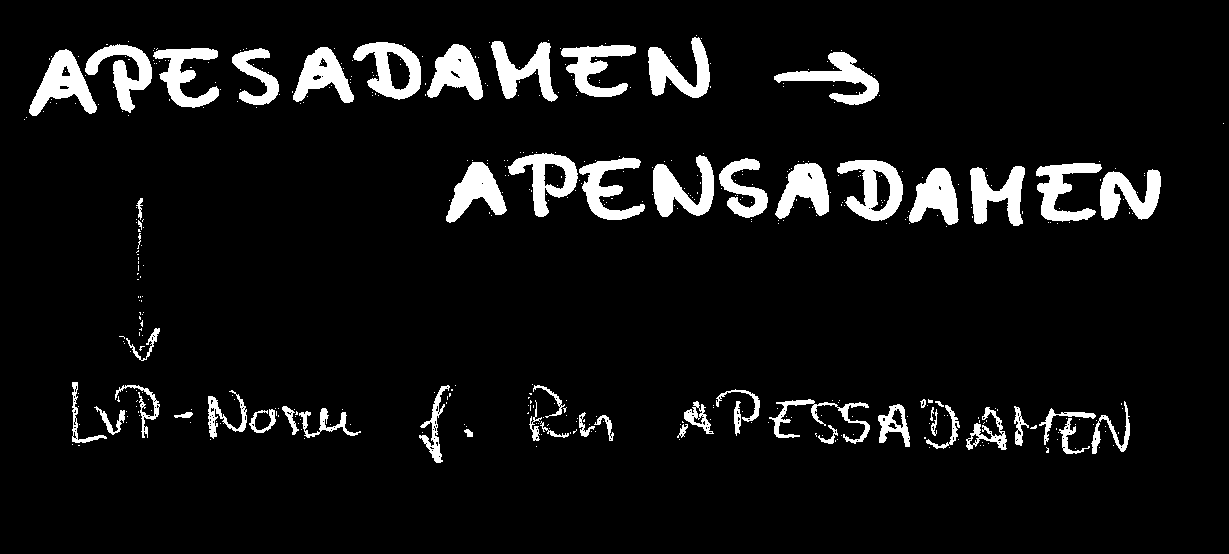 APESADAMEN →
APENSADAMEN
↓
LvP-Norm f. Rn APESSADAMEN